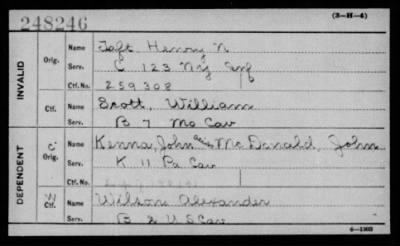 248246
(3-H-4)
INVALID
Orig.
Name Taft, Henry N
Serv. C 123 N.Y. Inf
Ctf. No. 259308
Ctf.
Name Scott, William
Serv. B 7 Mo Cav
DEPENDENT
C
Orig.
Name Kenna, John alias Mc Donald, John
Serv. K 11 Pa Cav
Ctf. No.
W
Ctf.
Name Wilson Alexander
Serv. B 2 U S Cav
6-1003